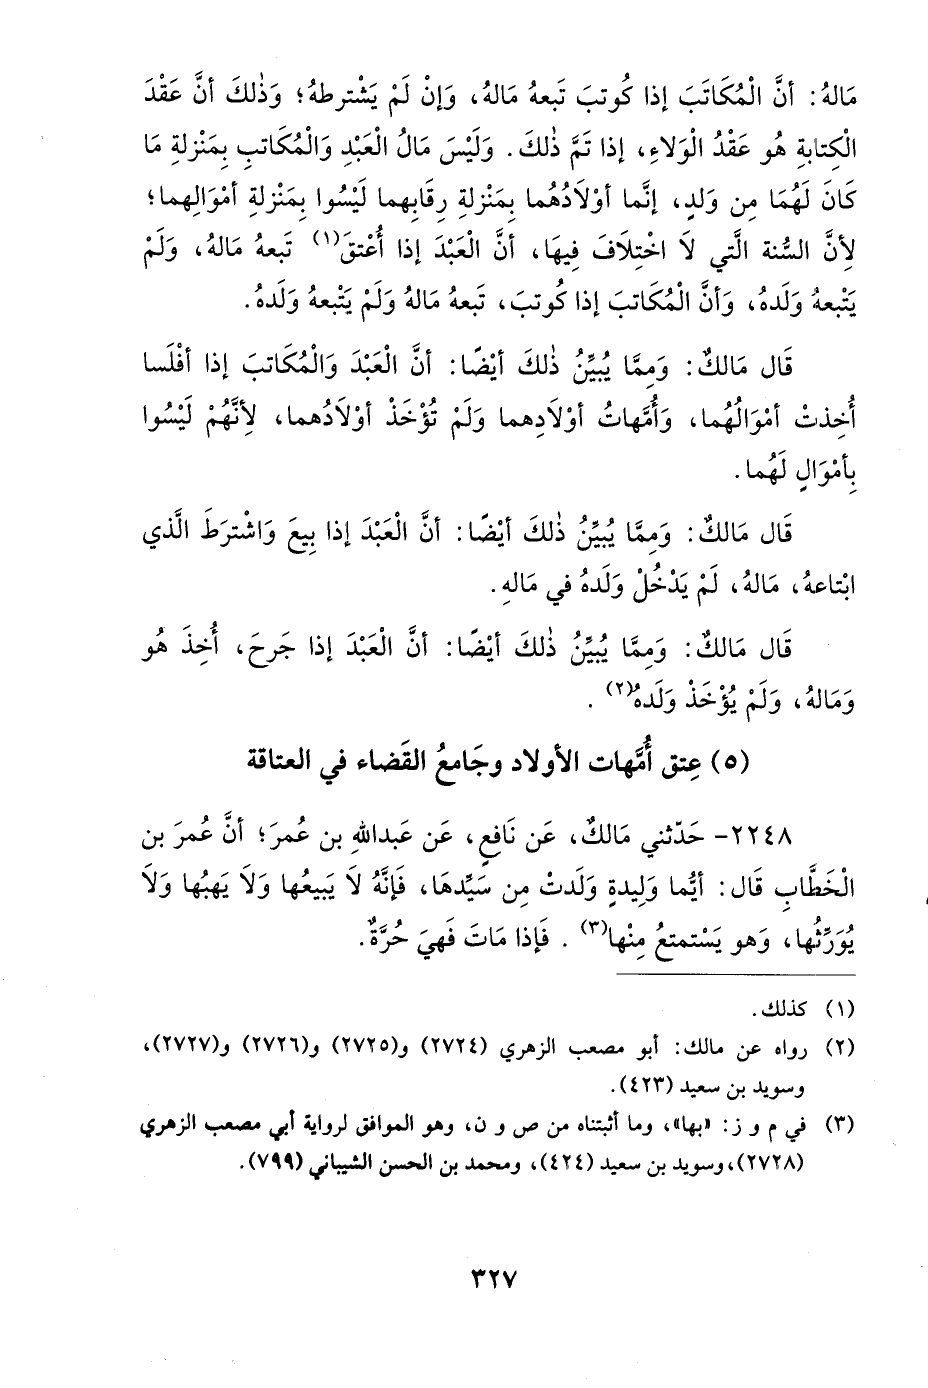 مَالهُ: أنَّ الْمُكَاتَبَ إذا كُوتبَ تَبعهُ مَالهُ، وَإنْ لَمْ يَشْترطهُ؛ وَذٰلكَ أنَّ عَقْدَ
الْكِتابةِ هُو عَقْدُ الْوَلاءِ، إذا تمَّ ذٰلكَ. وَلَيْسَ مَالُ الْعَبْدِ وَالْمُكاتبِ بِمَنْزلةِ مَا
كَانَ لَهُمَا مِن وَلدٍ، إنَّما أوْلَادُهُما بِمَنْزلةِ رِقَابِهما لَيْسُوا بِمَنْزلةِ أمْوَالِهما؛
لأنَّ السُّنة الَّتي لَا اخْتِلَافَ فِيهَا، أنَّ الْعَبْدَ إذا أُعْتقَ(١) تَبعهُ مَالهُ، وَلَمْ
يَتْبعهُ وَلَدهُ، وَأنَّ الْمُكاتبَ إذا كُوتبَ، تَبعهُ مَالهُ وَلَمْ يَتْبعهُ وَلَدهُ.
قَال مَالكٌ: وَمِمَّا يُبيِّنُ ذٰلكَ أيْضًا: أنَّ الْعَبْدَ وَالْمُكاتبَ إذا أفْلَسا
أُخِذتْ أمْوَالُهُما، وَأُمَّهاتُ أوْلَادِهما وَلَمْ تُؤْخَذْ أوْلَادُهما، لِأنَّهُمْ لَيْسُوا
بِأمْوَالٍ لَهُما.
قَال مَالكٌ: وَمِمَّا يُبيِّنُ ذٰلكَ أيْضًا: أنَّ الْعَبْدَ إذا بِيعَ وَاشْترطَ الَّذي
ابْتاعهُ، مَالهُ، لَمْ يَدْخُلْ وَلَدهُ في مَالهِ.
قَال مَالكٌ: وَمِمَّا يُبيِّنُ ذٰلكَ أيْضًا: أنَّ الْعَبْدَ إذا جَرحَ، أُخِذَ هُو
وَمَالهُ، وَلَمْ يُؤْخَذْ وَلَدهُ(٢).
(٥) عِتق أُمَّهات الأولاد وجَامعُ القَضاء في العتاقة
٢٢٤٨- حَدّثني مَالكٌ، عَن نَافعٍ، عَن عَبدالله بن عُمرَ؛ أنَّ عُمرَ بن
الْخَطَّابِ قَال: أيُّما وَلِيدةٍ وَلَدتْ مِن سَيِّدهَا، فَإنَّهُ لَا يَبيعُها وَلَا يَهبُها وَلَا
يُوَرِّثُها، وَهو يَسْتمتعُ مِنْها(٣). فَإذا مَاتَ فَهيَ حُرَّةٌ.
(١) كذلك.
(٢) رواه عن مالك: أبو مصعب الزهري (٢٧٢٤) و(٢٧٢٥) و(٢٧٢٦) و(٢٧٢٧)،
وسويد بن سعيد (٤٢٣).
(٣) في م و ز: «بها»، وما أثبتناه من ص و ن، وهو الموافق لرواية أبي مصعب الزهري
(٢٧٢٨)، وسويد بن سعيد (٤٢٤)، ومحمد بن الحسن الشيباني (٧٩٩).
٣٢٧